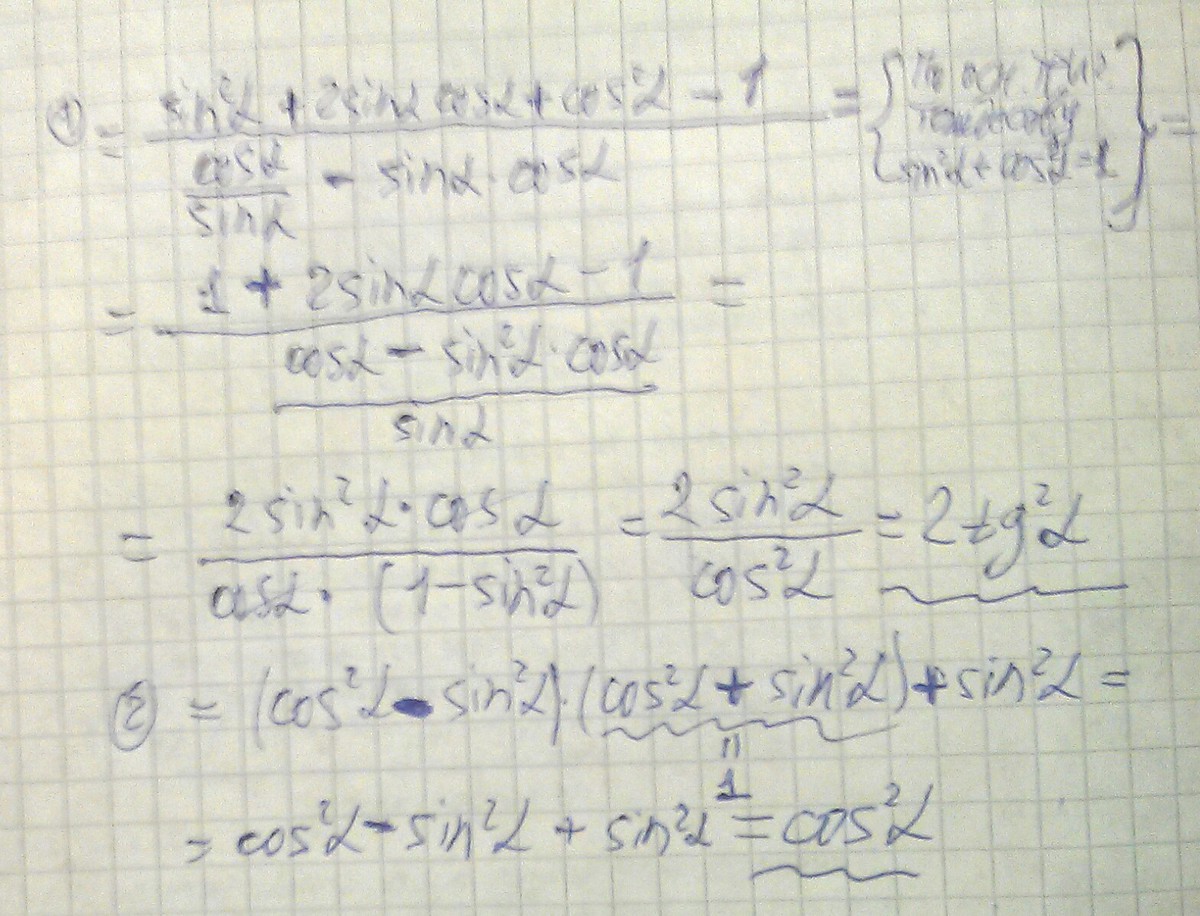 ① = (sin²α + 2sinα cosα + cos²α − 1) / (cosα/sinα − sinα · cosα) = { По осн. триг. тождеству sin²α + cos²α = 1 } =
= (1 + 2sinα cosα − 1) / ((cosα − sin²α · cosα)/sinα) =
= (2sin²α · cosα) / (cosα · (1 − sin²α)) = 2sin²α / cos²α = 2tg²α
② = (cos²α − sin²α) · (cos²α + sin²α) + sin²α =
"
1
= cos²α − sin²α + sin²α = cos²α